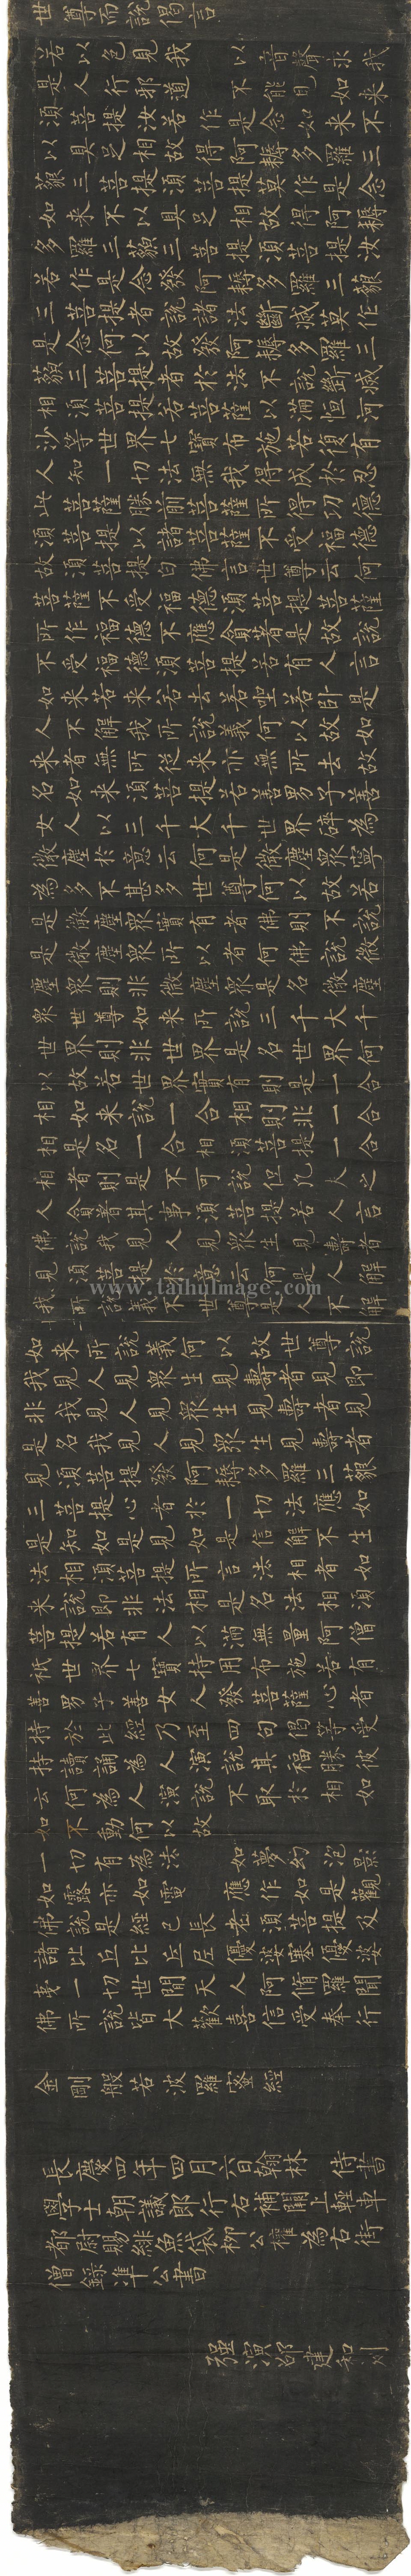 世尊而說偈言
若以色見我　以音聲求我
是人行邪道　不能見如來
須菩提汝若作是念如來不
以具足相故得阿耨多羅三
藐三菩提須菩提莫作是念
如來不以具足相故得阿耨
多羅三藐三菩提須菩提汝
若作是念發阿耨多羅三藐
三菩提者說諸法斷滅莫作
是念何以故發阿耨多羅三
藐三菩提者於法不說斷滅
相須菩提若菩薩以滿恒河
沙等世界七寶布施若復有
人知一切法無我得成於忍
此菩薩勝前菩薩所得功德
須菩提以諸菩薩不受福德
故須菩提白佛言世尊云何
菩薩不受福德須菩提菩薩
所作福德不應貪著是故說
不受福德須菩提若有人言
如來若來若去若坐若臥是
人不解我所說義何以故如
來者無所從來亦無所去故
名如來須菩提若善男子善
女人以三千大千世界碎為
微塵於意云何是微塵眾寧
為多不甚多世尊何以故若
是微塵眾實有者佛則不說
是微塵眾所以者何佛說微
塵眾則非微塵眾是名微塵
眾世尊如來所說三千大千
世界則非世界是名世界何
以故若世界實有則是一合
相如來說一合相則非一合
相是名一合相須菩提一合
相者則是不可說但凡夫之
人貪著其事須菩提若人言
佛說我見人見眾生見壽者
見須菩提於意云何是人解
我所說義不世尊是人不解
www.taihuimage.com
如來所說義何以故世尊說
我見人見眾生見壽者見即
非我見人見眾生見壽者見
是名我見人見眾生見壽者
見須菩提發阿耨多羅三藐
三菩提心者於一切法應如
是知如是見如是信解不生
法相須菩提所言法相者如
來說即非法相是名法相須
菩提若有人以滿無量阿僧
祇世界七寶持用布施若有
善男子善女人發菩薩心者
持於此經乃至四句偈等受
持讀誦為人演說其福勝彼
云何為人演說不取於相如
如不動何以故
一切有為法　如夢幻泡影
如露亦如電　應作如是觀
佛說是經已長老須菩提及
諸比丘比丘尼優婆塞優婆
夷一切世間天人阿脩羅聞
佛所說皆大歡喜信受奉行
金剛般若波羅蜜經
長慶四年四月六日翰林　侍書
學士朝議郎行右補闕上輕車
都尉賜緋魚袋柳公權為右街
僧錄準公書
強演邵建和刻